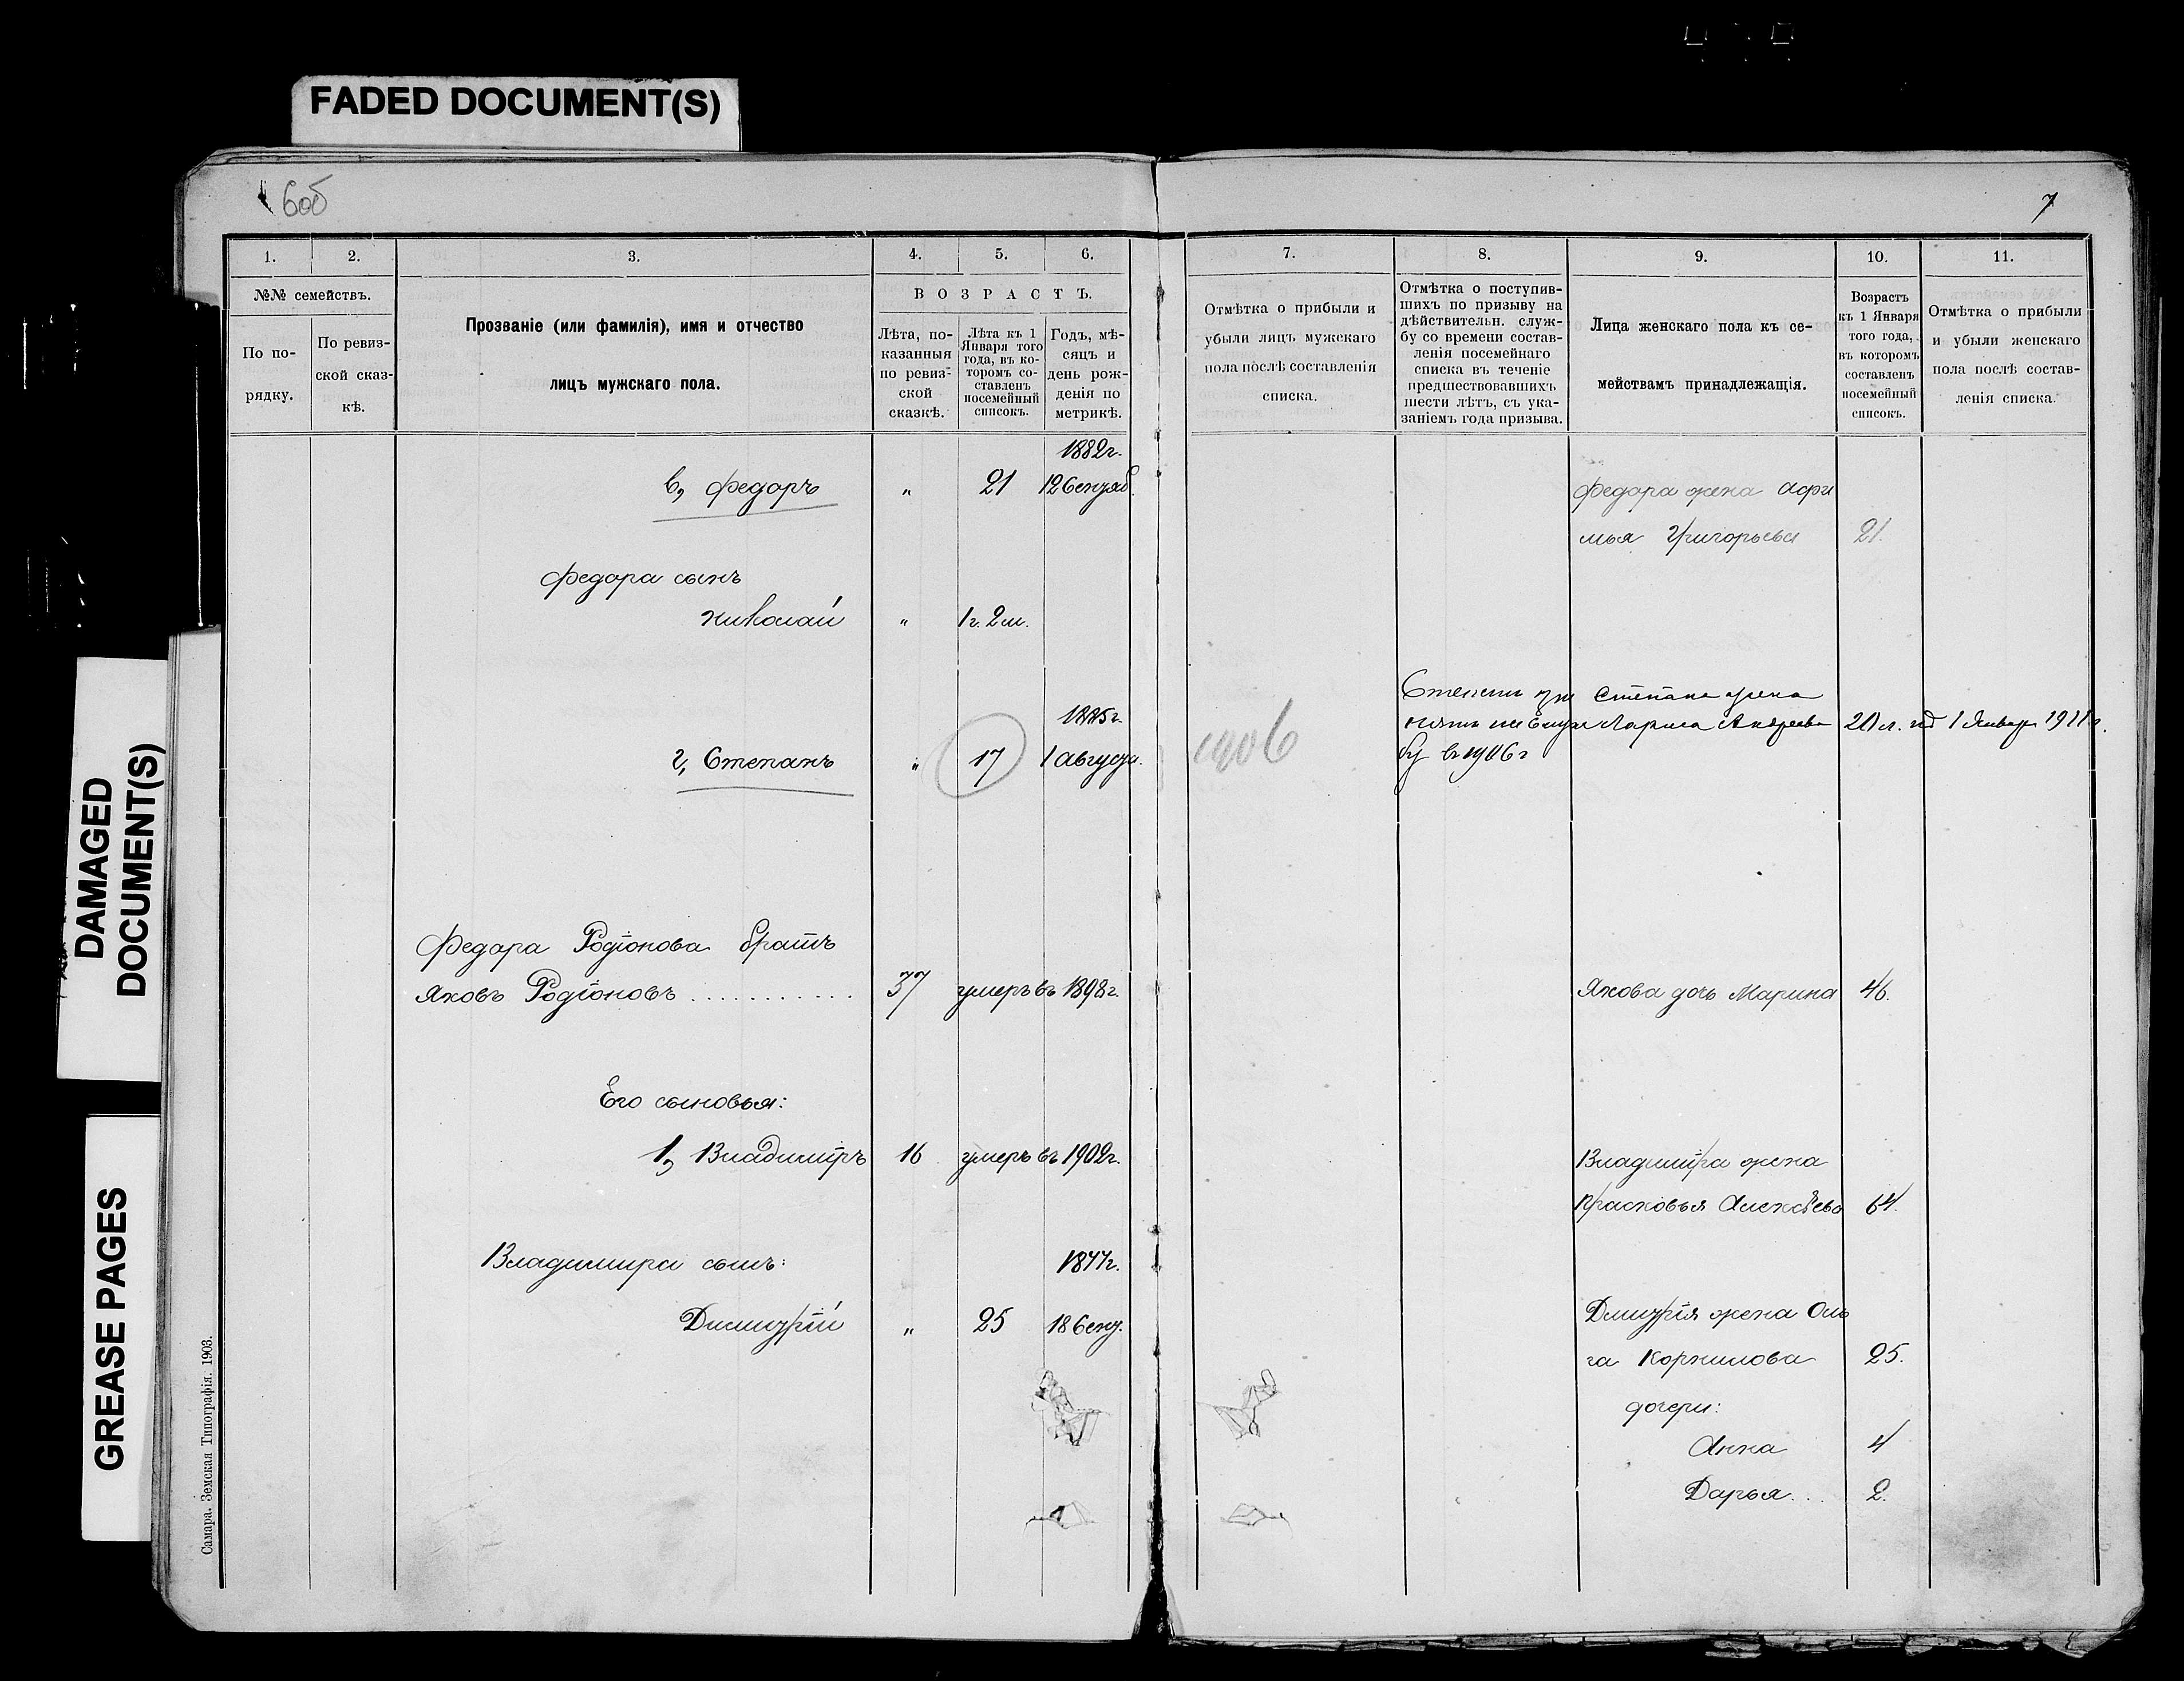 FADED DOCUMENT(S)
DAMAGED DOCUMENT(S)
GREASE PAGES
Самара. Земская Типографія. 1903.
6об
7
1. 2. 3. 4. 5. 6.
№№ семействъ.
По по-
рядку.
По ревиз-
ской сказ-
кѣ.
Прозваніе (или фамилія), имя и отчество
лицъ мужскаго пола.
ВОЗРАСТЪ.
Лѣта, по-
казанныя
по ревиз-
ской
сказкѣ.
Лѣта къ 1
Января того
года, въ ко-
торомъ со-
ставленъ
посемейный
списокъ.
Годъ, мѣ-
сяцъ и
день рож-
денія по
метрикѣ.
1882г.
в, Федоръ " 21 12 Сентяб.
Федора сынъ
Николай " 1г. 2м.
1885г
г, Степанъ " 17 1 Августа.
Федора Родіонова братъ
Яковъ Родіоновъ 37 умеръ въ 1898г.
Его сыновья:
1, Владиміръ 16 умеръ въ 1902г.
Владимира сынъ: 1877г.
Димитрій " 25 18 Сент.
7. 8. 9. 10. 11.
Отмѣтка о прибыли и
убыли лицъ мужскаго
пола послѣ составленія
списка.
Отмѣтка о поступив-
шихъ по призыву на
дѣйствительн. служ-
бу со времени состав-
ленія посемейнаго
списка въ теченіе
предшествовавшихъ
шести лѣтъ, съ ука-
заніемъ года призыва.
Лица женскаго пола къ се-
мействамъ принадлежащія.
Возрастъ
къ 1 Января
того года,
въ которомъ
составленъ
посемейный
списокъ.
Отмѣтка о прибыли
и убыли женскаго
пола послѣ состав-
ленія списка.
Федора жена Афи
мья Григорьева 21.
Степанъ при Степана жена
нятъ на служ Лариса Андреева 20 л. на 1 Январ 1911 г.
бу въ 1906 г
1906
Якова дочь Марина 46.
Владиміра жена
Прасковья Алексѣева 64.
Димитрія жена Оль
га Корнилова 25.
дочери:
Анна 4
Дарья... 2.